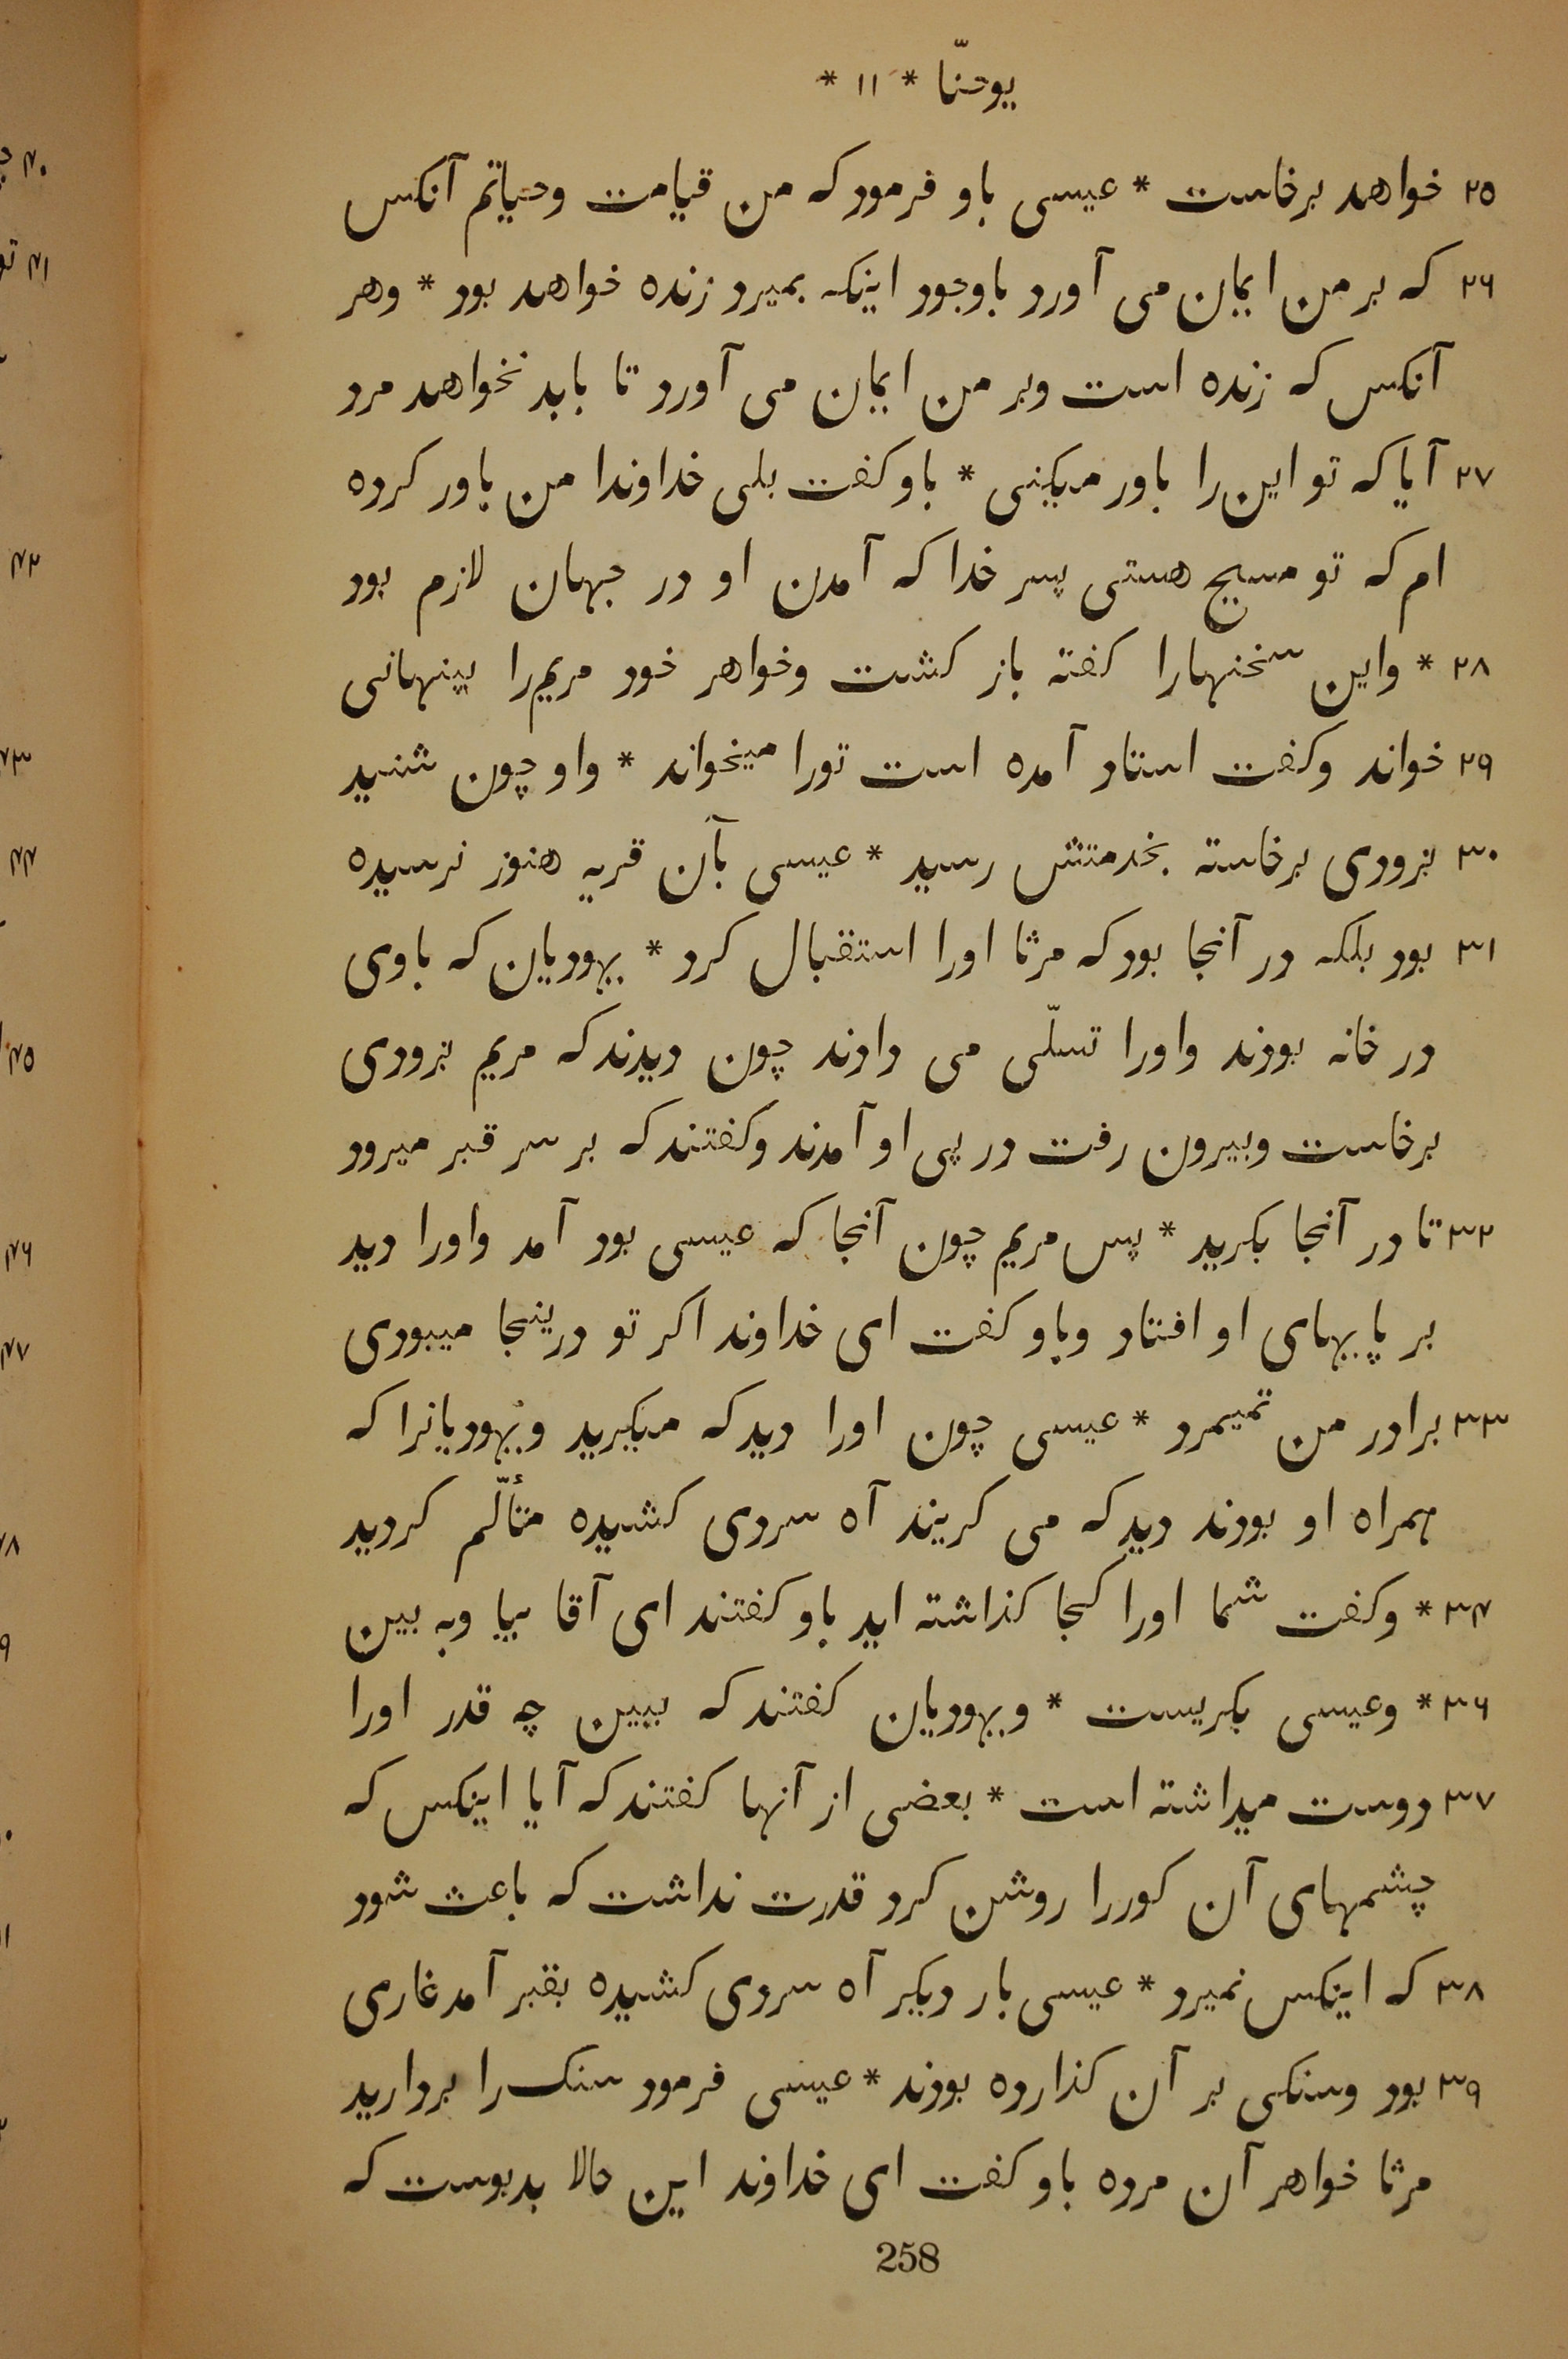 یوحنّا * ۱۱ *
۲۵ خواهد برخاست * عیسی باو فرمود که من قیامت وحیاتم آنکس
۲۶ که بر من ایمان می آورد باوجود اینکه بمیرد زنده خواهد بود * وهر
آنکس که زنده است وبر من ایمان می آورد تا بابد نخواهد مرد
۲۷ آیا که تو این را باور میکنی * باو کفت بلی خداوندا من باور کرده
ام که تو مسیح هستی پسر خدا که آمدن او در جهان لازم بود
۲۸ * واین سخنهارا کفته باز کشت وخواهر خود مریم را بپنهانی
۲۹ خواند وکفت استاد آمده است تورا میخواند * واو چون شنید
۳۰ بزودی برخاسته بخدمتش رسید * عیسی بآن قریه هنوز نرسیده
۳۱ بود بلکه در آنجا بود که مرثا اورا استقبال کرد * یهودیان که باوی
در خانه بودند واورا تسلّی می دادند چون دیدند که مریم بزودی
برخاست وبیرون رفت در پی او آمدند وکفتند که بر سر قبر میرود
۳۲ تا در آنجا بکرید * پس مریم چون آنجا که عیسی بود آمد واورا دید
بر پایهای او افتاد وباو کفت ای خداوند اکر تو درینجا میبودی
۳۳ برادر من نمیمرد * عیسی چون اورا دید که میکرید ویهودیانرا که
همراه او بودند دید که می کریند آه سردی کشیده متألّم کردید
۳۴ * وکفت شما اورا کجا کذاشته اید باو کفتند ای آقا بیا وبه بین
۳۶ * وعیسی بکریست * ویهودیان کفتند که ببین چه قدر اورا
۳۷ دوست میداشته است * بعضی از آنها کفتند که آیا اینکس که
چشمهای آن کوررا روشن کرد قدرت نداشت که باعث شود
۳۸ که اینکس نمیرد * عیسی بار دیکر آه سردی کشیده بقبر آمد غاری
۳۹ بود وسنکی بر آن کذارده بودند * عیسی فرمود سنک را بردارید
مرثا خواهر آن مرده باو کفت ای خداوند این حالا بدبوست که
258